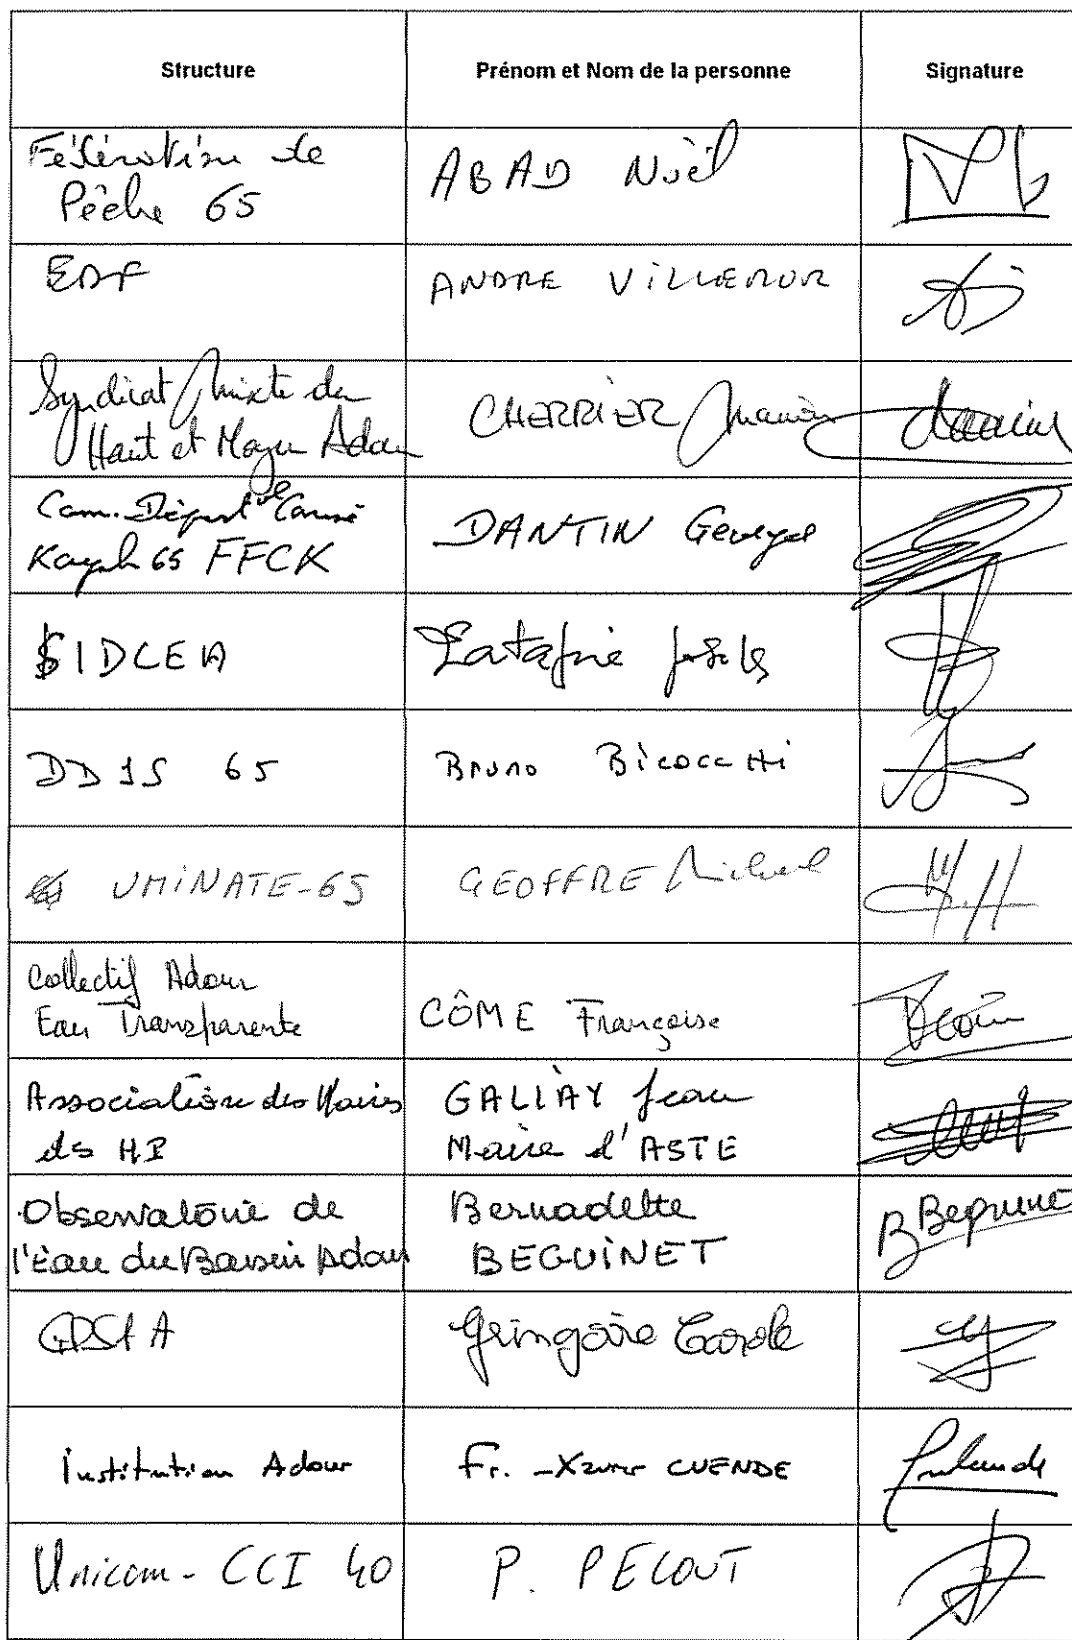 Structure
Prénom et Nom de la personne
Signature
Fédération de
Pêche 65
ABAD Noël
EDF
ANDRE VILLEMUR
Syndicat Mixte du
Haut et Moyen Adour
CHERRIER Marion
Com. Départ^al Canoë
Kayak 65 FFCK
DANTIN Georges
SIDCEA
Latapie
DDJS 65
Bruno Bicocchi
UMINATE-65
GEOFFRE Michel
Collectif Adour
Eau Transparente
CÔME Françoise
Association des Maires
des HP
GALIAY Jean
Maire d'ASTE
Observatoire de
l'Eau du Bassin Adour
Bernadette
BEGUINET
B Beguinet
Gringoire Carole
Institution Adour
Fr. -Xavier CUENDE
Unicem - CCI 40
P. PECOUT